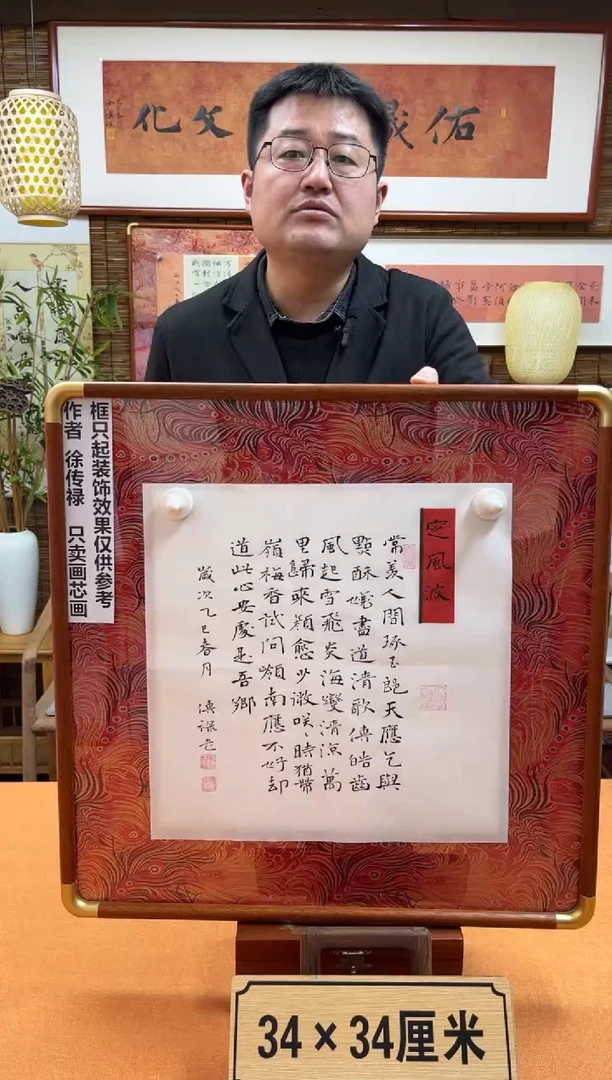 佑晟文化
框只起装饰效果仅供参考
作者 徐传禄 只卖画芯画
定風波
常羨人間琢玉郎天應乞與
點酥娘盡道清歌傳皓齒
風起雪飛炎海變清涼萬
里歸來顏愈少微咲〻時猶帶
嶺梅香試問嶺南應不好却
道此心安處是吾鄉
歲次乙巳春月 傳祿書
34×34厘米